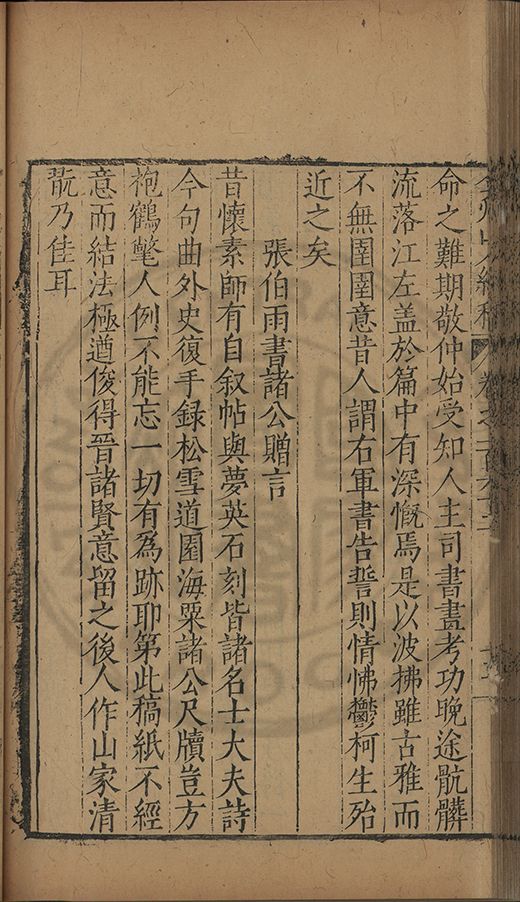 弇州山人續稿 卷之一百六十二
命之難期敬仲始受知人主司書畫考功晚途骯髒
流落江左盖於篇中有深慨焉是以波拂雖古雅而
不無圉圉意昔人謂右軍書告誓則情怫鬱柯生殆
近之矣
張伯雨書諸公贈言
昔懷素師有自叙帖與夢英石刻皆諸名士大夫詩
今句曲外史復手録松雪道園海粟諸公尺牘豈方
袍鶴氅人例不能忘一切有爲跡耶第此稿紙不經
意而結法極遒俊得晉諸賢意留之後人作山家清
翫乃佳耳